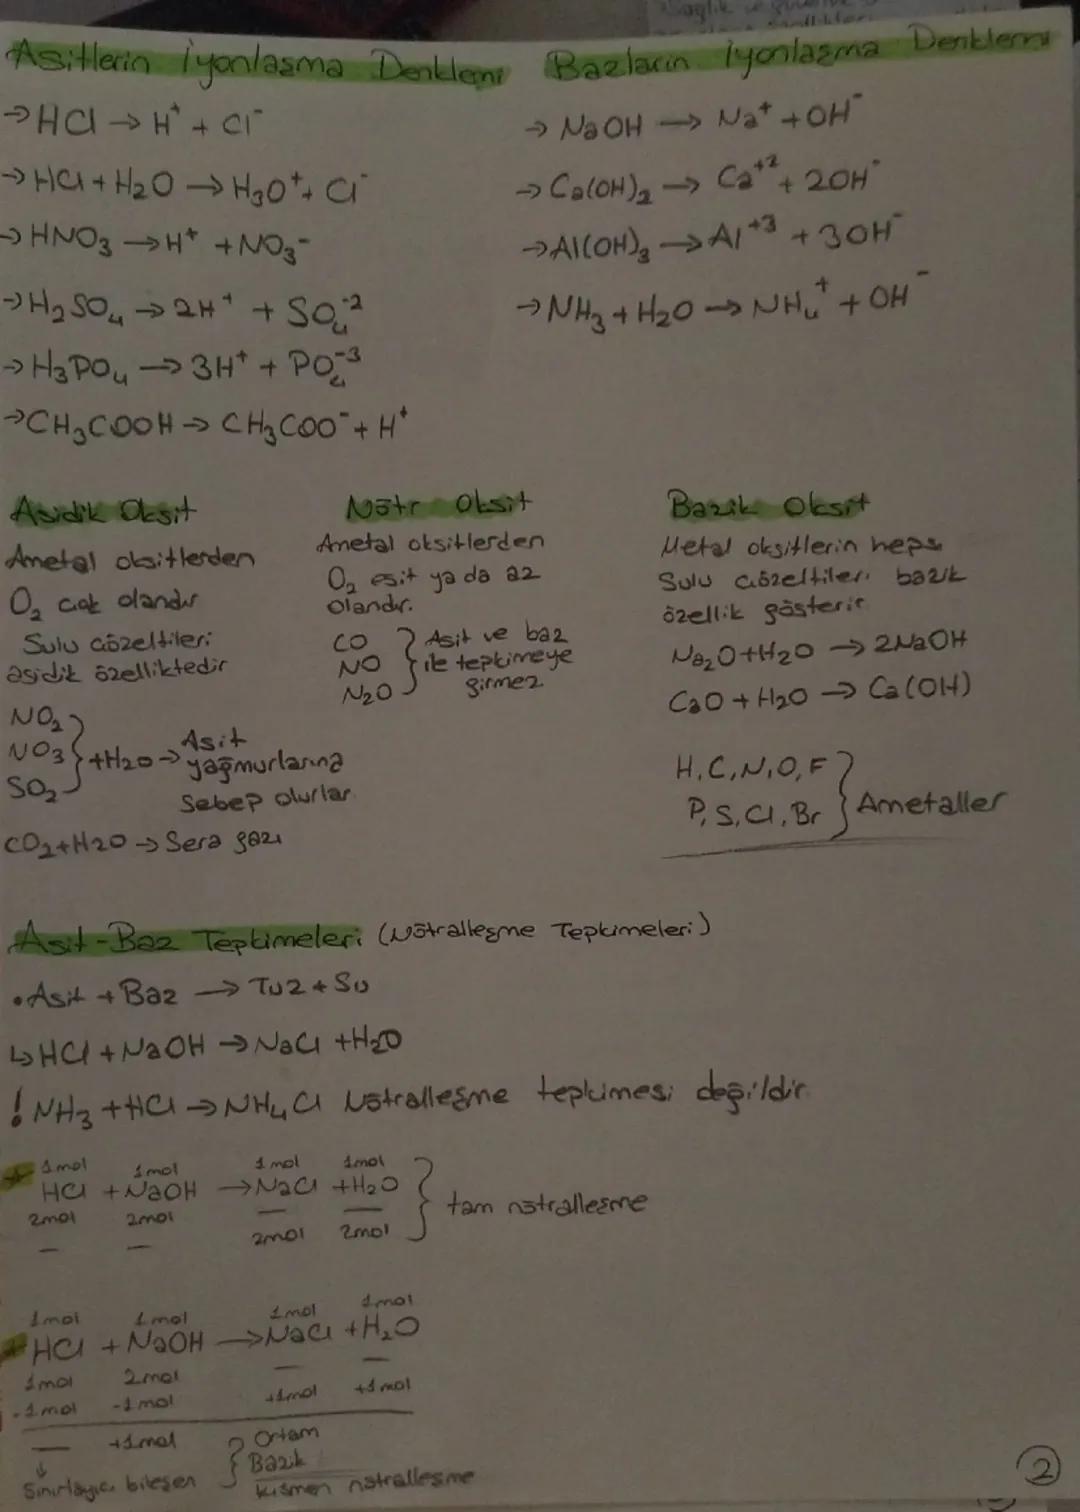 Asitlerin İyonlaşma Denklemi
→HCl → H⁺ + Cl⁻
→HCl + H₂O → H₃O⁺ + Cl⁻
→HNO₃ → H⁺ + NO₃⁻
→H₂SO₄ → 2H⁺ + SO₄⁻²
→H₃PO₄ → 3H⁺ + PO₄⁻³
→CH₃COOH → CH₃COO⁻ + H⁺
Bazların İyonlaşma Denklemi
→ NaOH → Na⁺ + OH⁻
→ Ca(OH)₂ → Ca⁺² + 2OH⁻
→Al(OH)₃ → Al⁺³ + 3OH⁻
→NH₃ + H₂O → NH₄⁺ + OH⁻
Asidik Oksit
Ametal oksitlerden
O₂ çok olandır
Sulu çözeltileri
asidik özelliktedir
NO₂
NO₃
SO₂
} +H₂O → Asit
yağmurlarına
Sebep olurlar.
CO₂+H₂O → Sera gazı
Nötr Oksit
Ametal oksitlerden
O₂ eşit ya da az
olandır.
CO
NO
N₂O
} Asit ve baz
ile tepkimeye
girmez
Bazik Oksit
Metal oksitlerin hepsi
Sulu çözeltileri bazik
özellik gösterir
Na₂O+H₂O → 2NaOH
CaO + H₂O → Ca(OH)
H, C, N, O, F
P, S, Cl, Br
} Ametaller
Asit-Baz Tepkimeleri (Nötralleşme Tepkimeleri)
• Asit + Baz → Tuz + Su
↳ HCl + NaOH → NaCl + H₂O
! NH₃ + HCl → NH₄Cl Nötralleşme tepkimesi değildir.
1mol 1mol 1mol 1mol
HCl + NaOH → NaCl + H₂O } tam nötralleşme
2mol 2mol — —
— — 2mol 2mol
1mol 1mol 1mol 1mol
HCl + NaOH → NaCl + H₂O
1mol 2mol — —
-1mol -1mol +1mol +1mol
— +1mol
↓
Sınırlayıcı bileşen
} Ortam
Bazik
kısmen nötralleşme
2